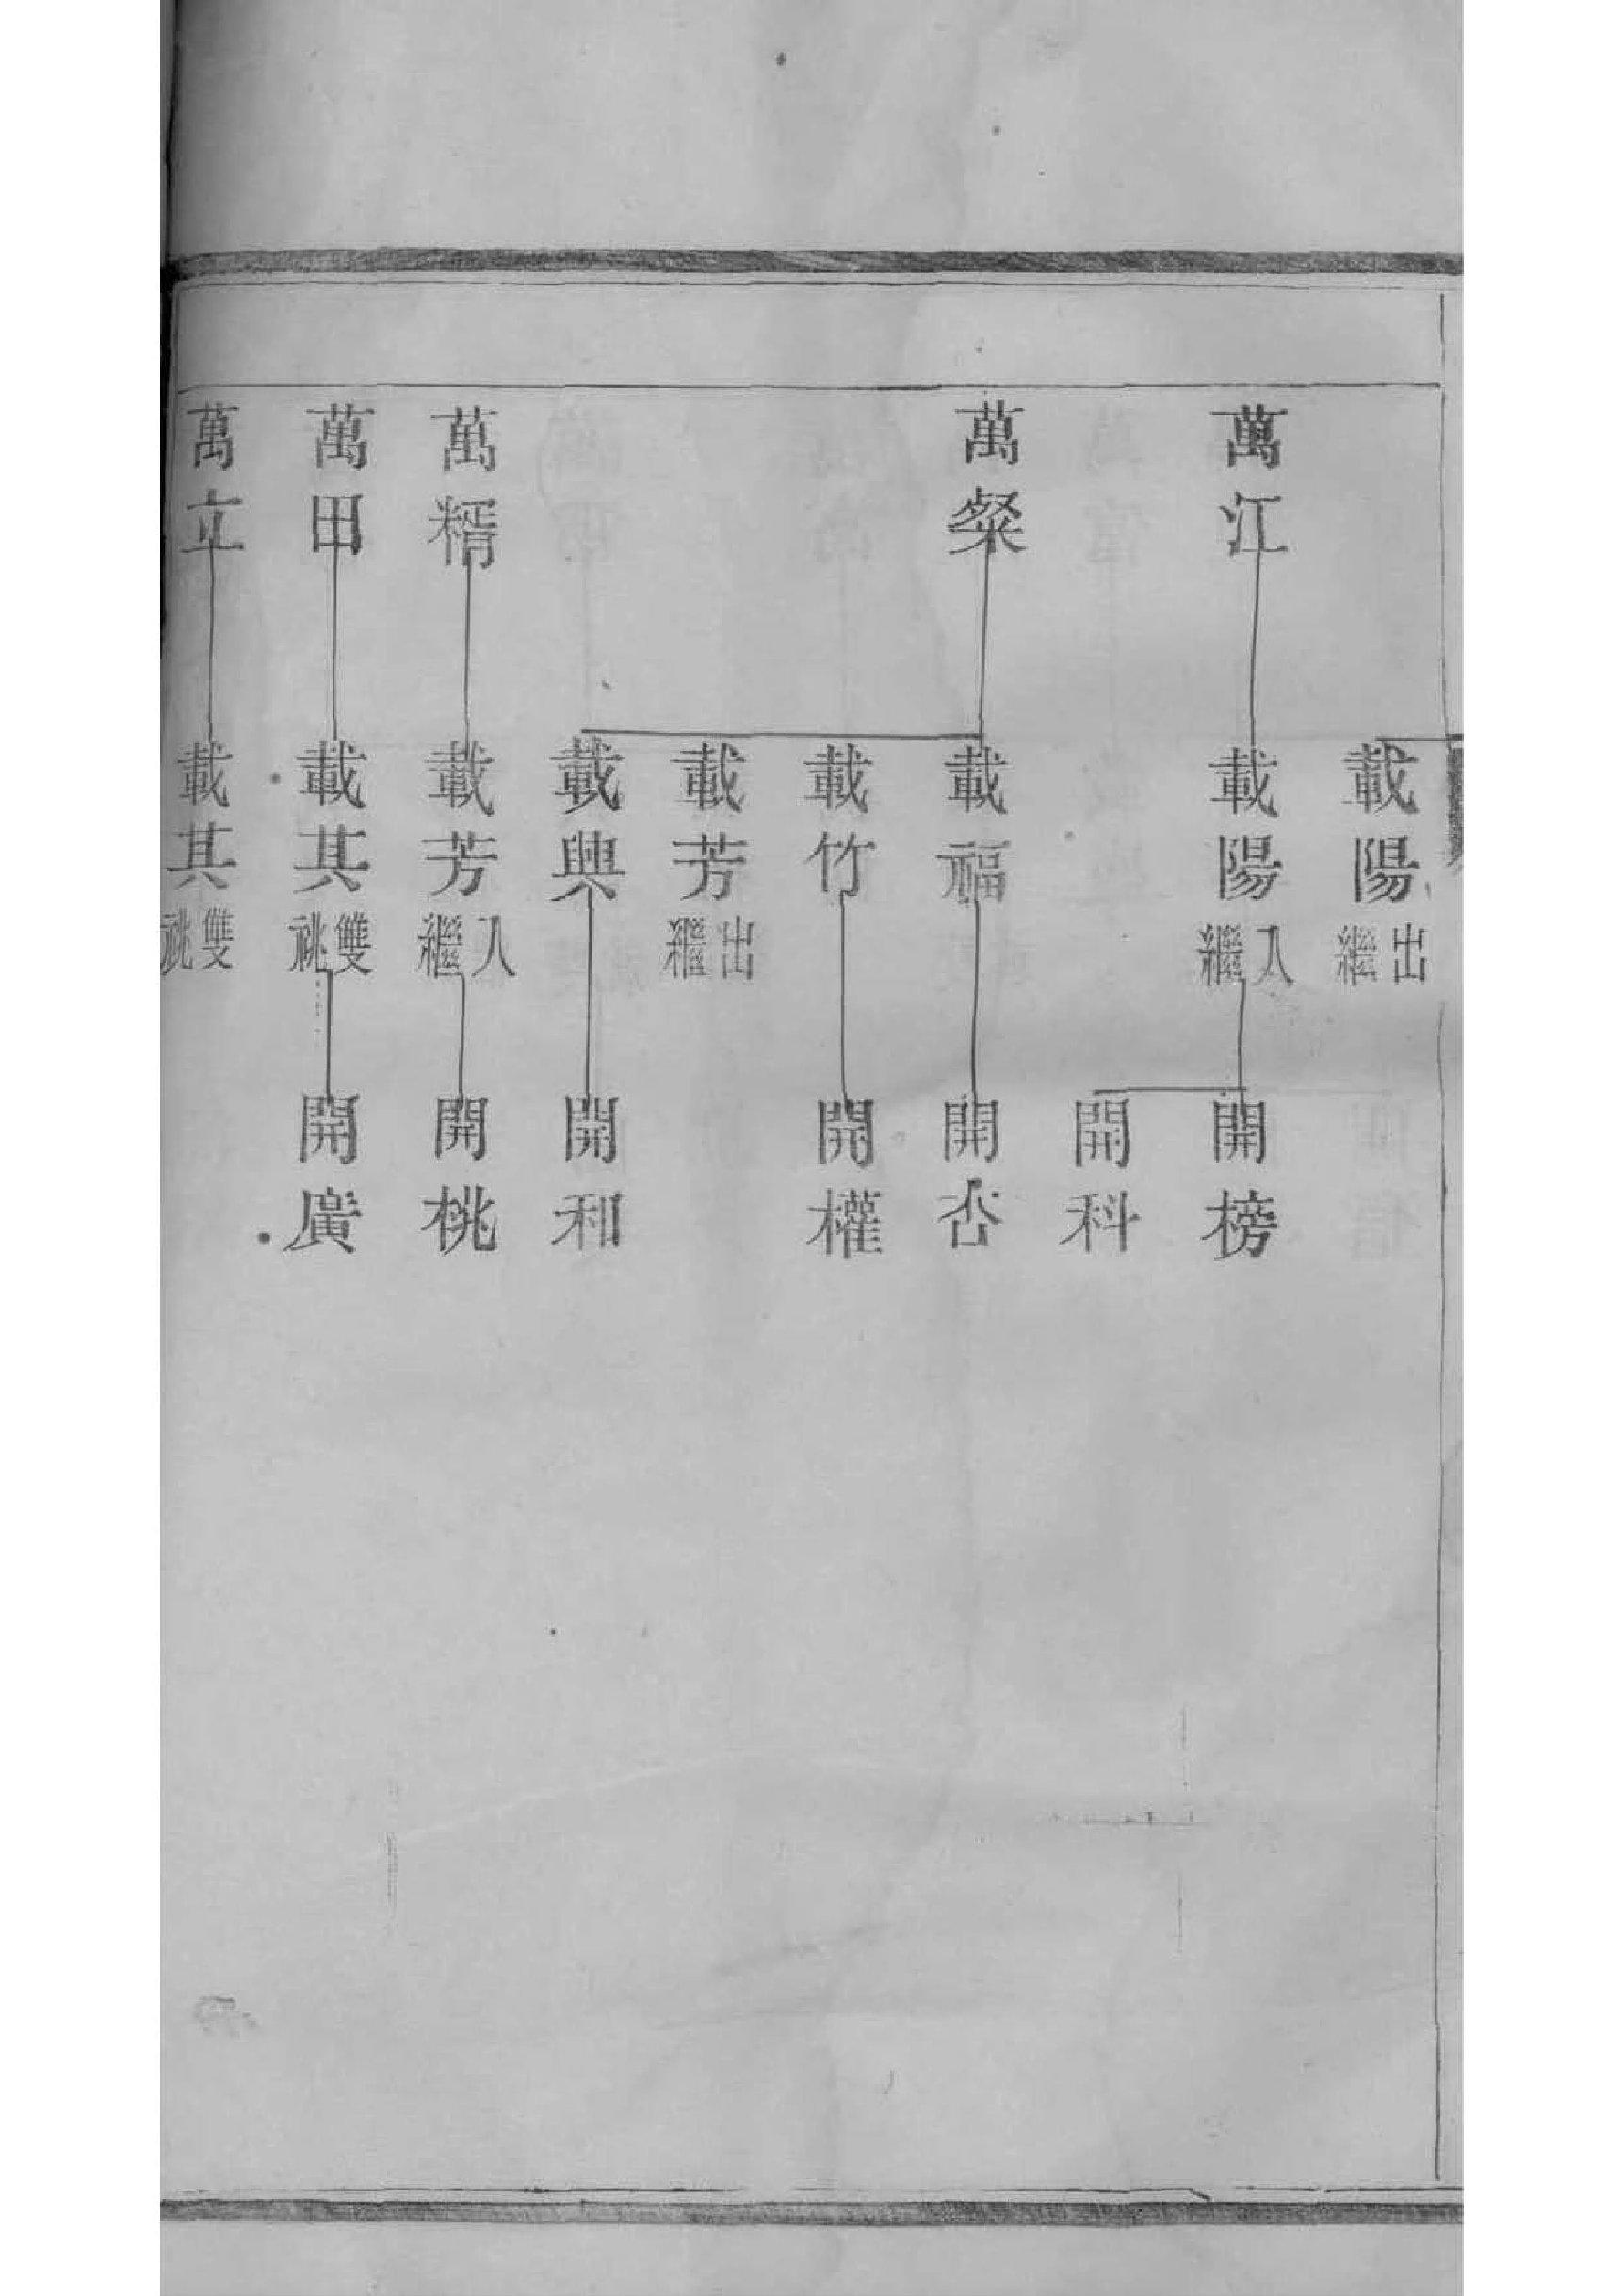 載陽出繼
萬江
載陽入繼
開榜
開科
萬粲
載福
開杏
載竹
開權
載芳出繼
載興
開和
萬糈
載芳入繼
開桃
萬田
載其雙祧
開廣
萬立
載其雙祧